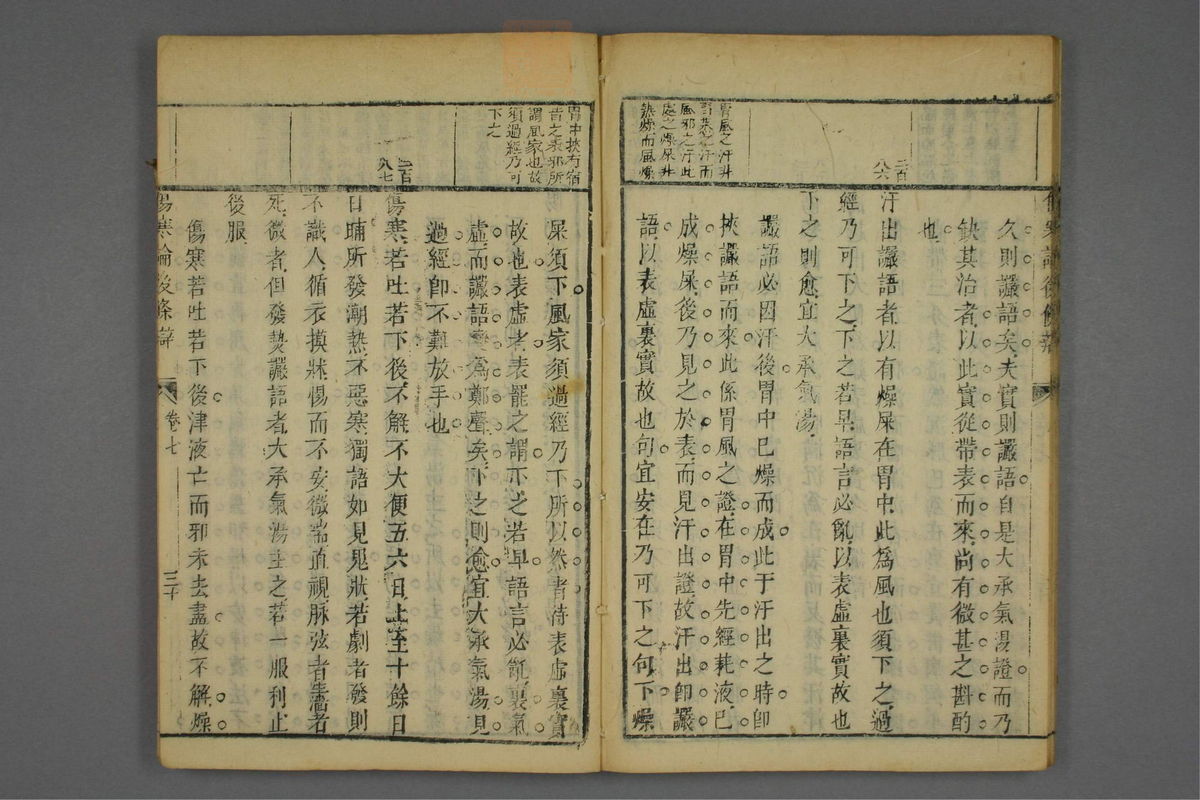 久則讝語矣夫實則讝語自是大承氣湯證而乃
缺其治者以此實從帶表而來尚有微甚之斟酌
也
二百八六
汗出讝語者以有燥屎在胃中此爲風也須下之過
經乃可下之下之若早語言必亂以表虛裏實故也
下之則愈宜大承氣湯
胃風之汗
胃熱之汗而
風邪之汗此
處之燥屎
熱燥而風燥
讝語必因汗後胃中巳燥而成此于汗出之時卽
挾讝語而來此係胃風之證在胃中先經耗液巳
成燥屎後乃見之於表而見汗出證故汗出卽讝
語以表虛裏實故也句宜安在乃可下之句下燥
胃中挾有宿
昔之來邪所
謂風家也故
須過經乃可
下之
屎須下風家須過經乃下所以然者待表虛裏實
故也表虛者表罷之謂下之若早語言必亂裏氣
虛而讝語變爲鄭聲矣下之則愈宜大承氣湯見
過經卽不難放手也
二百八七
傷寒若吐若下後不解不大便五六日上至十餘日
日晡所發潮熱不惡寒獨語如見鬼狀若劇者發則
不識人循衣摸牀惕而不安微喘直視脉弦者生濇者
死微者但發熱讝語者大承氣湯主之若一服利止
後服
傷寒若吐若下後津液亡而邪未去盡故不解燥
傷寒論後條辯
卷七
三十